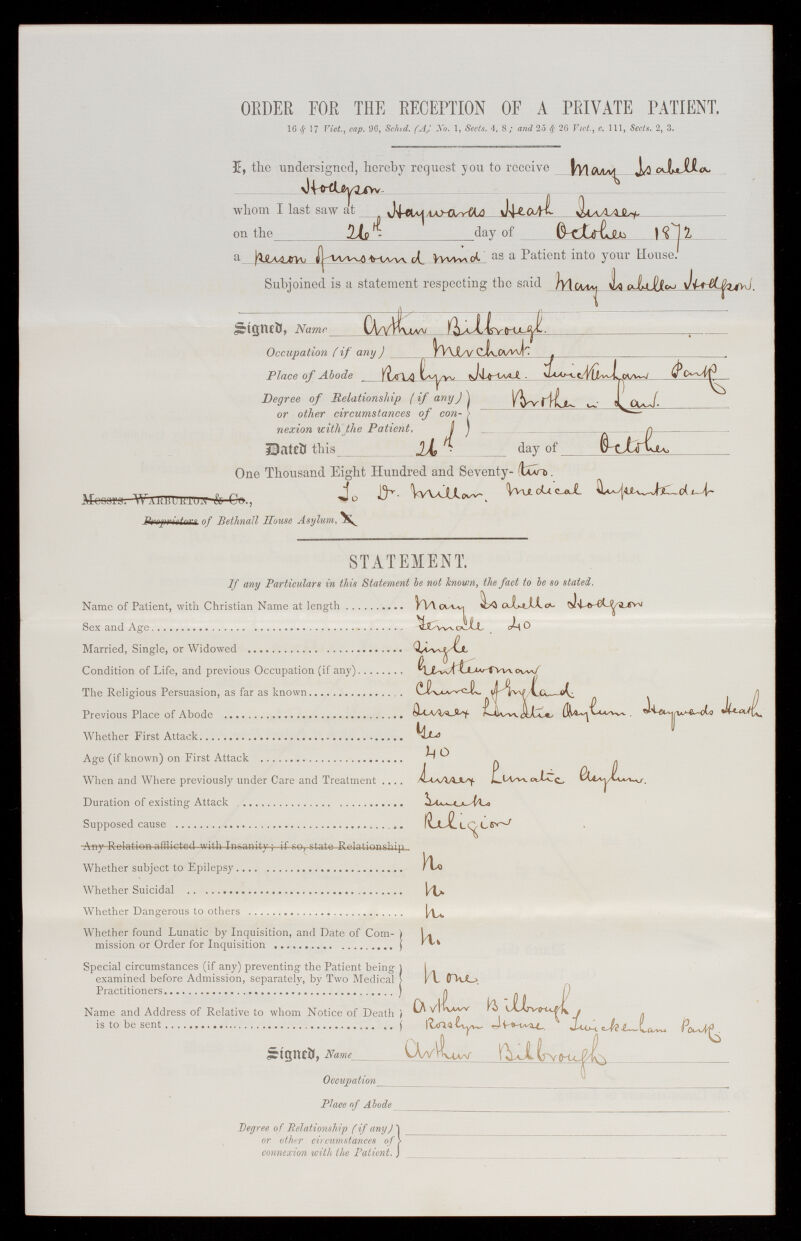 ORDER FOR THE RECEPTION OF A PRIVATE PATIENT.
16 & 17 Vict., cap. 96, Sched. (A) No. 1, Sects. 4, 8; and 25 & 26 Vict., c. 111, Sects. 2, 3.
I, the undersigned, hereby request you to receive Mary Isabella
Hodgson
whom I last saw at Haywards Heath Sussex
on the 26th day of October 1872
a person of unsound mind as a Patient into your House.
Subjoined is a statement respecting the said Mary Isabella Hodgson.
Signed, Name Arthur Bilbrough.
Occupation (if any) Merchant.
Place of Abode Rosslyn House. Twickenham Park
Degree of Relationship (if any) or other circumstances of con-nexion with the Patient. Brother in Law.
Dated this 26th day of October
One Thousand Eight Hundred and Seventy-two.
Messrs. WARBURTON & Co., To Dr. Millar, Medical Superintendent
Proprietors of Bethnall House Asylum,
STATEMENT.
If any Particulars in this Statement be not known, the fact to be so stated.
Name of Patient, with Christian Name at length .......... Mary Isabella Hodgson
Sex and Age .......... Female. 40
Married, Single, or Widowed .......... Single
Condition of Life, and previous Occupation (if any) ........ Gentlewoman
The Religious Persuasion, as far as known .......... Church of England
Previous Place of Abode .......... Sussex Lunatic Asylum. Haywards Heath
Whether First Attack .......... Yes
Age (if known) on First Attack .......... 40
When and Where previously under Care and Treatment .... Sussex Lunatic Asylum.
Duration of existing Attack .......... 3 weeks
Supposed cause .......... Religion
Any Relation afflicted with Insanity; if so, state Relationship..
Whether subject to Epilepsy .......... No
Whether Suicidal .......... No
Whether Dangerous to others .......... No
Whether found Lunatic by Inquisition, and Date of Com-
mission or Order for Inquisition .......... No
Special circumstances (if any) preventing the Patient being
examined before Admission, separately, by Two Medical
Practitioners .......... None.
Name and Address of Relative to whom Notice of Death Arthur Bilbrough,
is to be sent .......... Rosslyn House Twickenham Park.
Signed, Name Arthur Bilbrough
Occupation
Place of Abode
Degree of Relationship (if any)
or other circumstances of
connexion with the Patient.